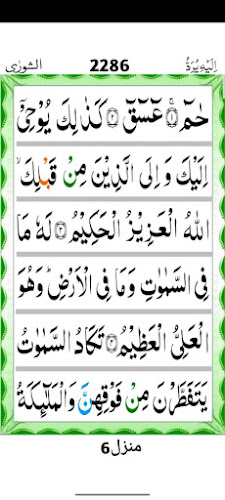 اِلَيْهِ يُرَدُّ 2286 الشورٰى
حٰمٓ ۝۱ عٓسٓقٓ ۝۲ كَذٰلِكَ يُوْحِىْۤ
اِلَيْكَ وَاِلَى الَّذِيْنَ مِنْ قَبْلِكَ ۙ
اللّٰهُ الْعَزِيْزُ الْحَكِيْمُ ۝۳ لَهٗ مَا
فِى السَّمٰوٰتِ وَمَا فِى الْاَرْضِ ؕ وَهُوَ
الْعَلِىُّ الْعَظِيْمُ ۝۴ تَكَادُ السَّمٰوٰتُ
يَتَفَطَّرْنَ مِنْ فَوْقِهِنَّ وَالْمَلٰٓئِكَةُ
منزل6